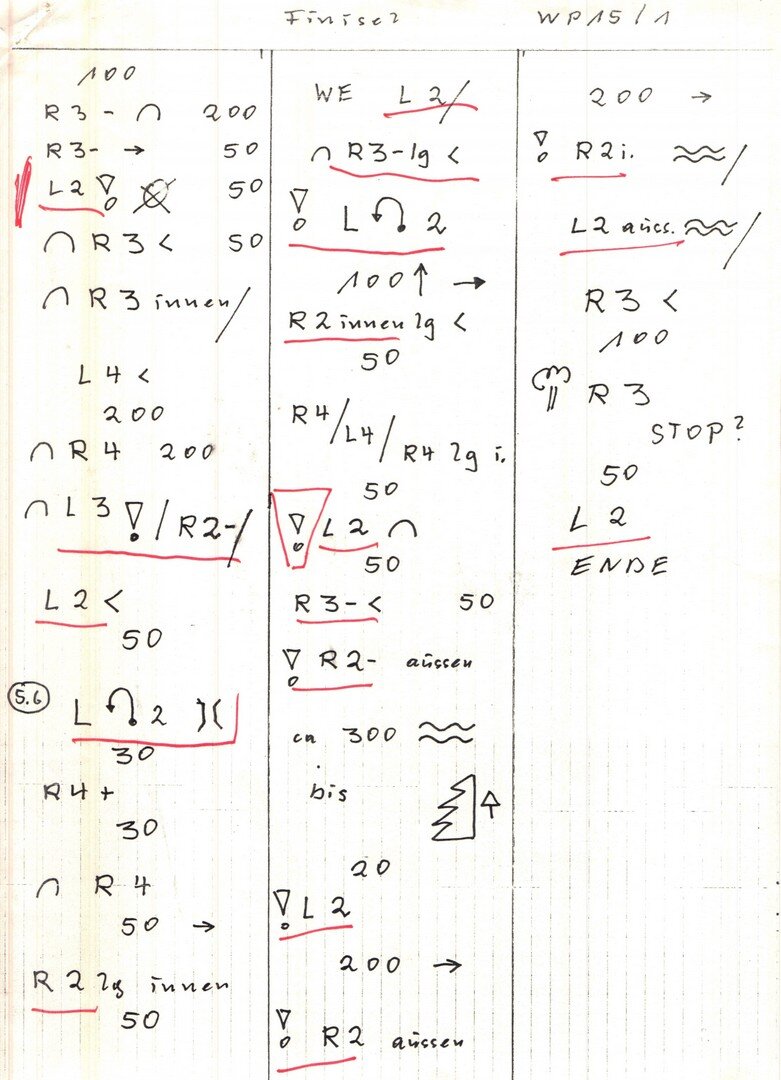 WP15/1
100
R3 - ∩ 200
R3- → 50
L2 ! 50
∩ R3 < 50
∩ R3 innen/
L4 <
200
∩ R4 200
∩ L3 ! / R2-/
L2 <
50
5.6 L 2 )(
30
R4+
30
∩ R4
50 →
R2 lg innen
50
WE L2/
∩ R3-lg <
! L 2
100 ↑ →
R2 innen lg <
50
R4/L4/R4 lg i.
50
! L2 ∩
50
R3-< 50
! R2- aüssen
ca 300 ≈
bis
20
! L2
200 →
! R2 aüssen
200 →
! R2 i. ≈/
L2 aüss. ≈/
R3 <
100
R3
STOP?
50
L2
ENDE